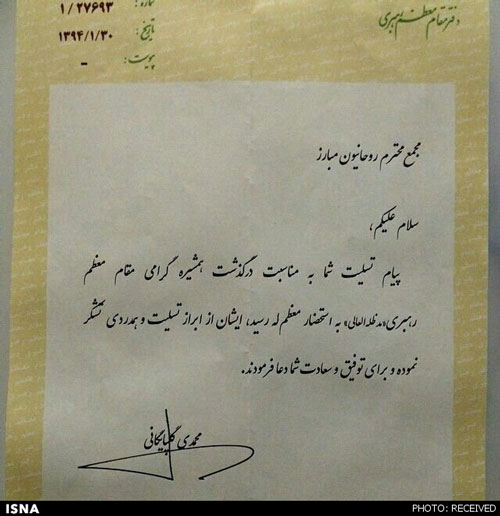 دفتر مقام معظم رهبری
شماره: ۱/۲۷۶۹۳
تاریخ: ۱۳۹۴/۱/۳۰
پیوست: -
مجمع محترم روحانیون مبارز
سلام علیکم،
پیام تسلیت شما به مناسبت درگذشت همشیره گرامی مقام معظم
رهبری«مدظله‌العالی» به استحضار معظم‌له رسید، ایشان از ابراز تسلیت و همدردی تشکر
نموده و برای توفیق و سعادت شما دعا فرمودند.
محمدی گلپایگانی
ISNA
PHOTO: RECEIVED